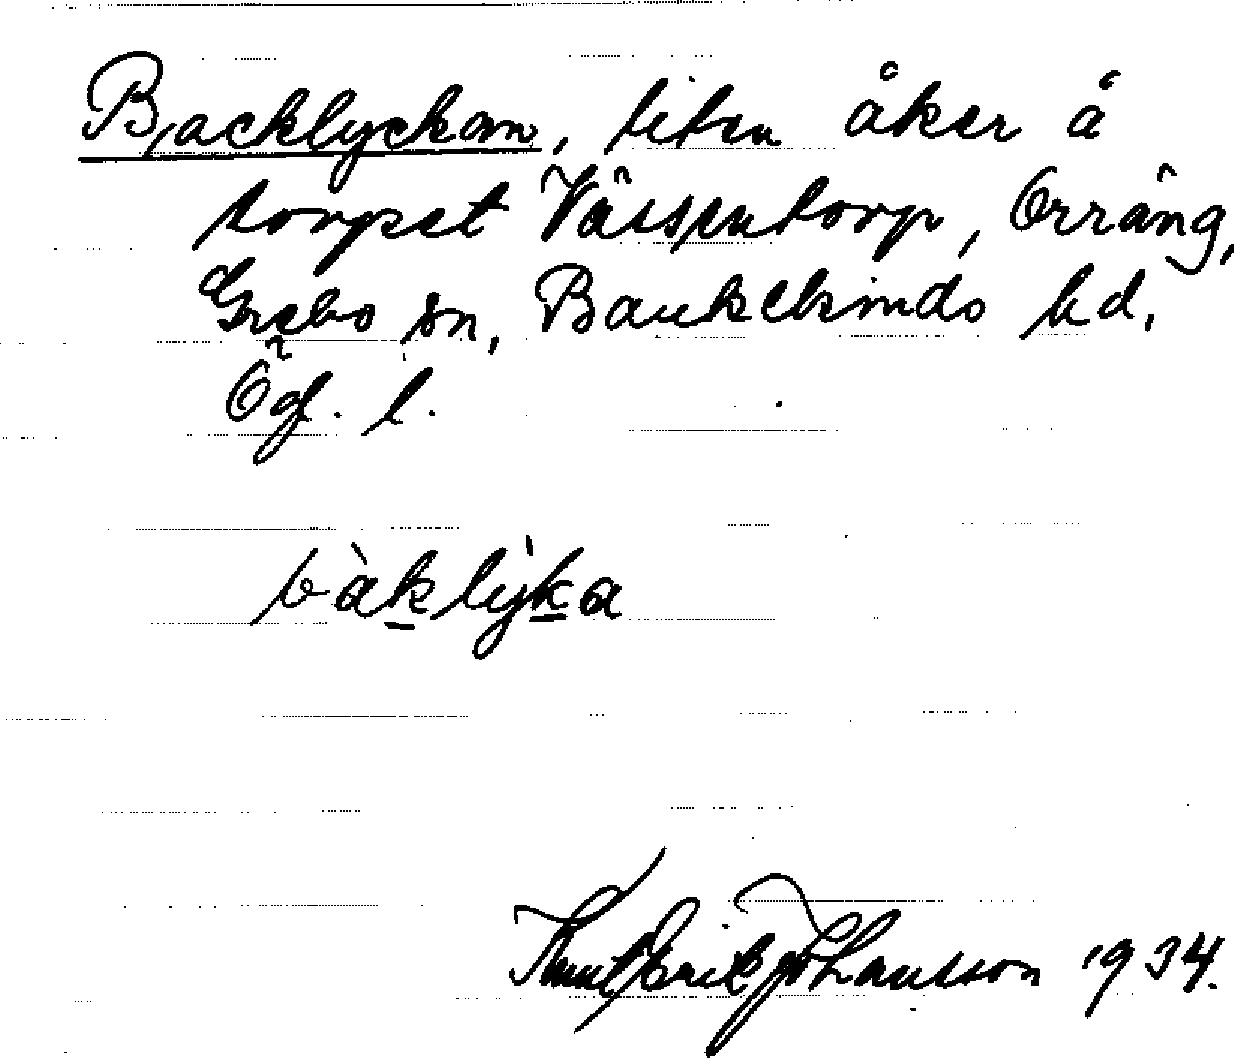 Backlyckan, liten åker å
torpet Vässentorp, Orräng,
Grebo sn, Bankekinds hd,
Ögl. l.
bàklỳka
Knut Erik Johansson 1934.